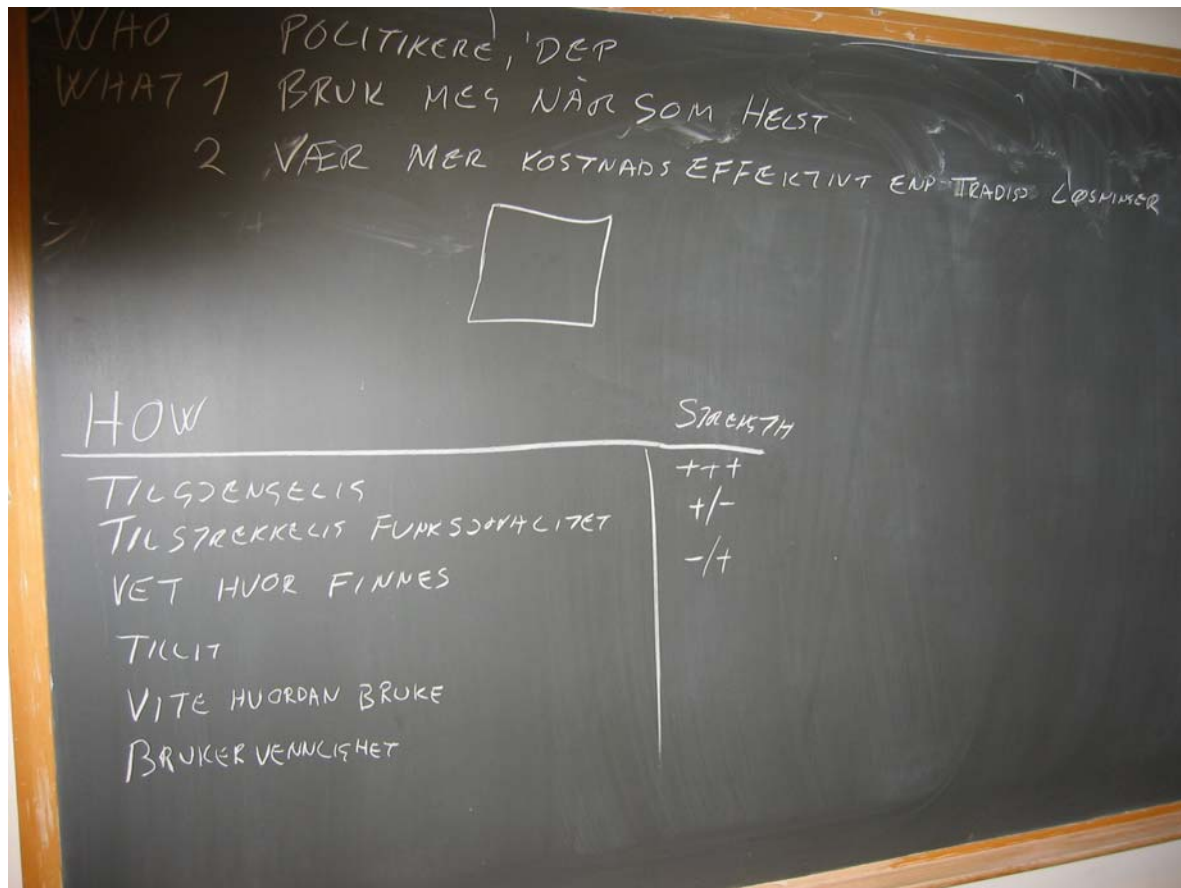 WHO POLITIKERE, DEP
WHAT 1 BRUK MEG NÅR SOM HELST
2 VÆR MER KOSTNADS EFFEKTIVT ENP TRADISJ LØSNINGER
HOW STRENGTH
TILGJENGELIG +++
TILSTREKKELIG FUNKSJONALITET +/-
VET HVOR FINNES -/+
TILLIT
VITE HVORDAN BRUKE
BRUKERVENNLIGHET